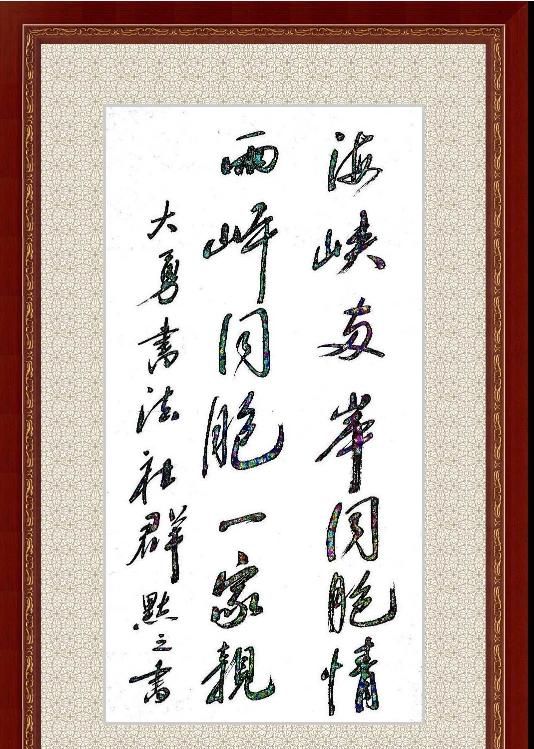 海峡两岸同胞情
两岸同胞一家親
大勇書法社群默之書